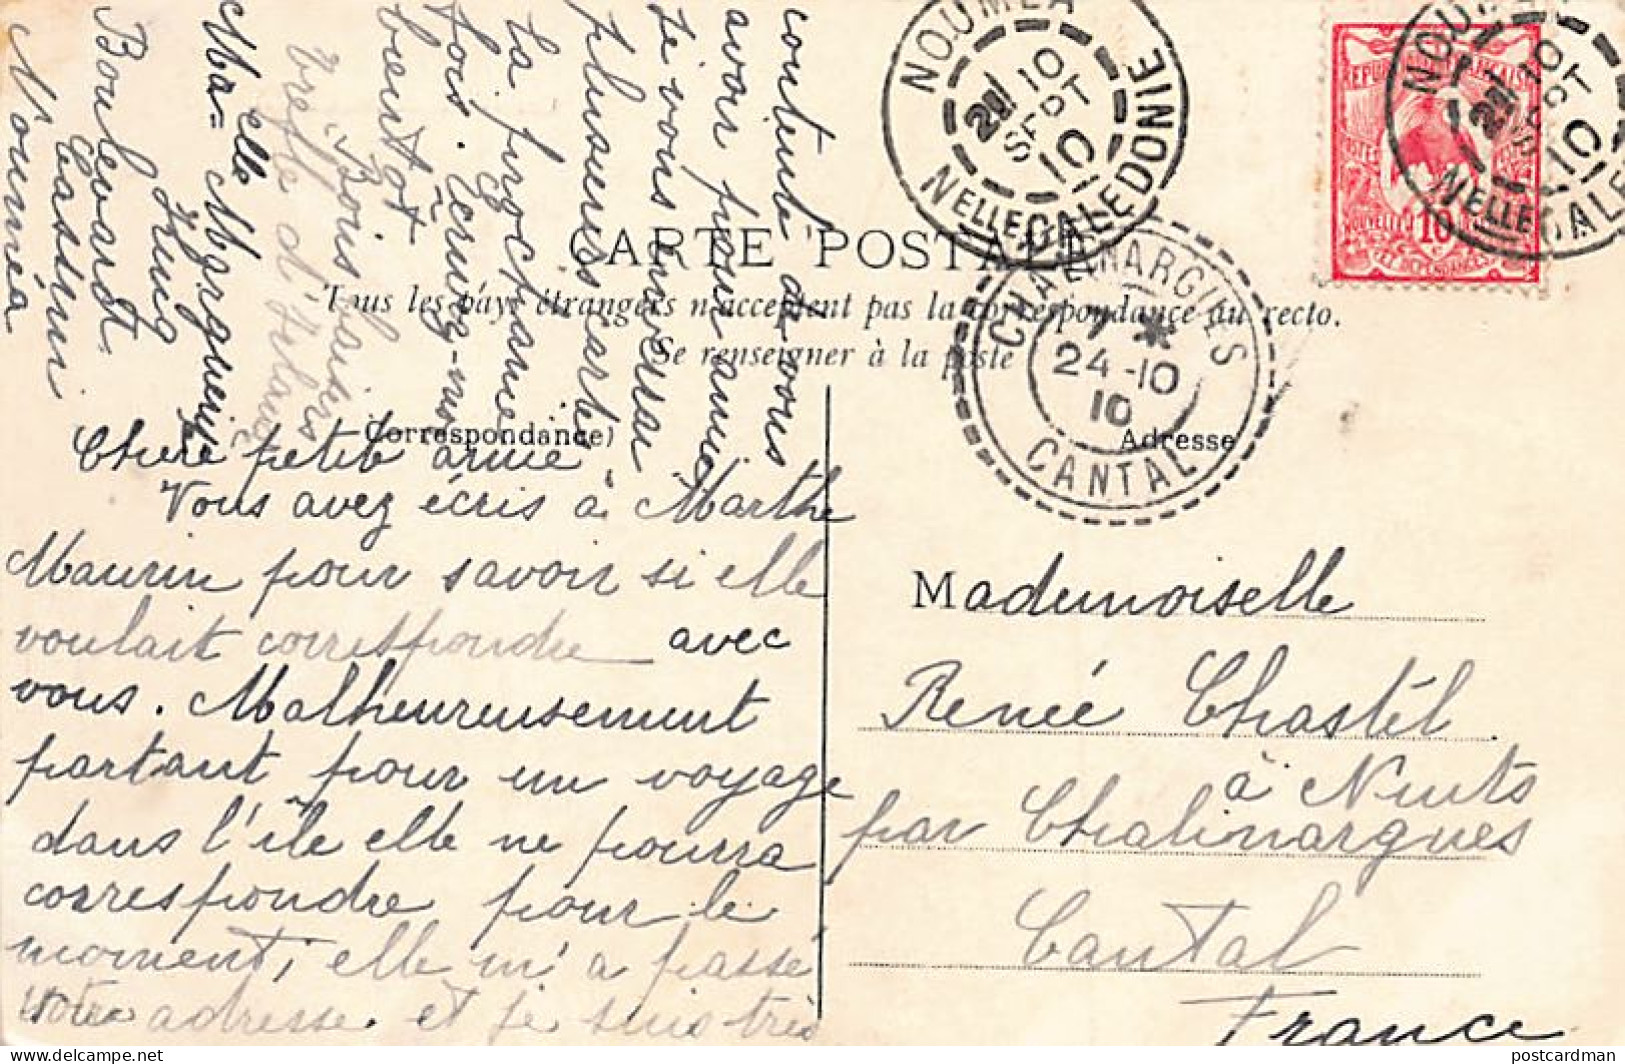 CARTE POSTALE
Tous les pays étrangers n'acceptent pas la correspondance au recto.
Se renseigner à la poste
Correspondance)
Adresse
Chère petite amie
Vous avez écris à Marthe
Maurin pour savoir si elle
voulait correspondre avec
vous. Malheureusement
partant pour un voyage
dans l'île elle ne pourra
correspondre pour le
moment, elle m'a passé
votre adresse. et je suis très
contente de vous
avoir pour amie
Je vous enverrai
plusieurs carte
la prochaine
fois. Écrivez-moi
bientôt
Bons baisers
trèfle d'Irlande
Ma elle Marguerite
King
Boulevard
Cassini
Nouméa
Mademoiselle
Renée Chastél
à Nuits
par Chalinargues
Cantal
France
NOUMEA
10
SEPT
10
NELLE CALEDONIE
NOUMEA
10
SEPT
10
NELLE CALEDONIE
CHALINARGUES
7 *
24 -10
10
CANTAL
REPUBLIQUE FRANÇAISE
POSTES
10 c
NOUVELLE CALEDONIE
ET DEPENDANCES
postcardman